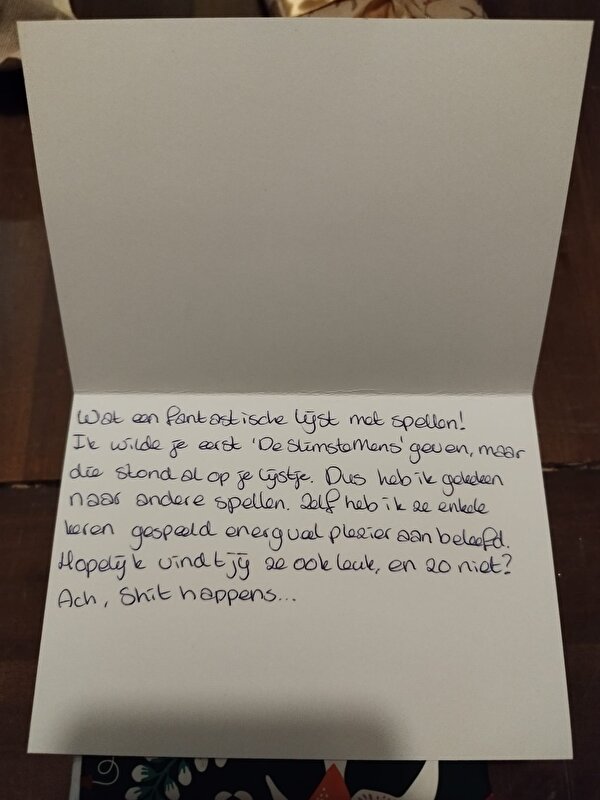 Wat een fantastische lijst met spellen!
Ik wilde je eerst 'De Slimste Mens' geven, maar
die stond al op je lijstje. Dus heb ik gekeken
naar andere spellen. Zelf heb ik ze enkele
keren gespeeld en erg veel plezier aan beleefd.
Hopelijk vindt jij ze ook leuk, en zo niet?
Ach, Shit happens...